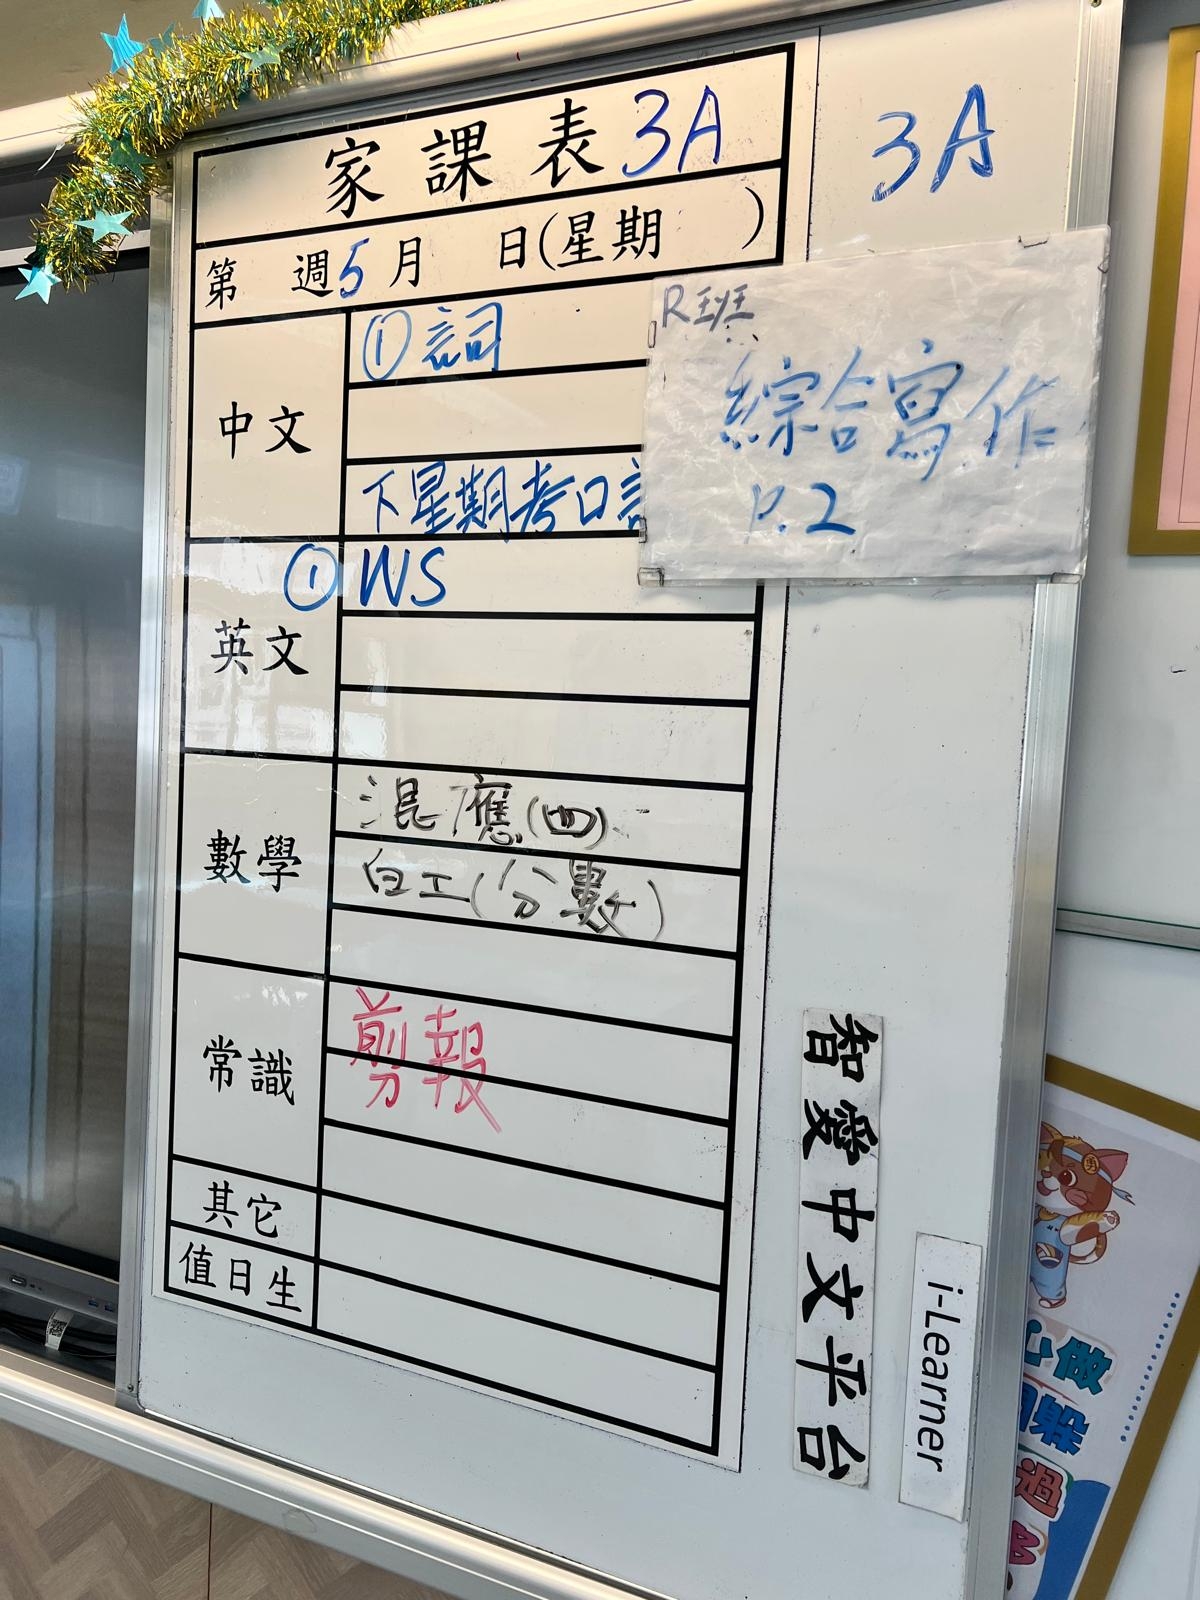 家課表3A
3A
第 週5月 日(星期 )
中文
①詞
下星期考口
R班
綜合寫作
P.2
英文
①WS
數學
混應(四)
白工(分數)
常識
剪報
其它
值日生
智愛中文平台
i-Learner
心做
過